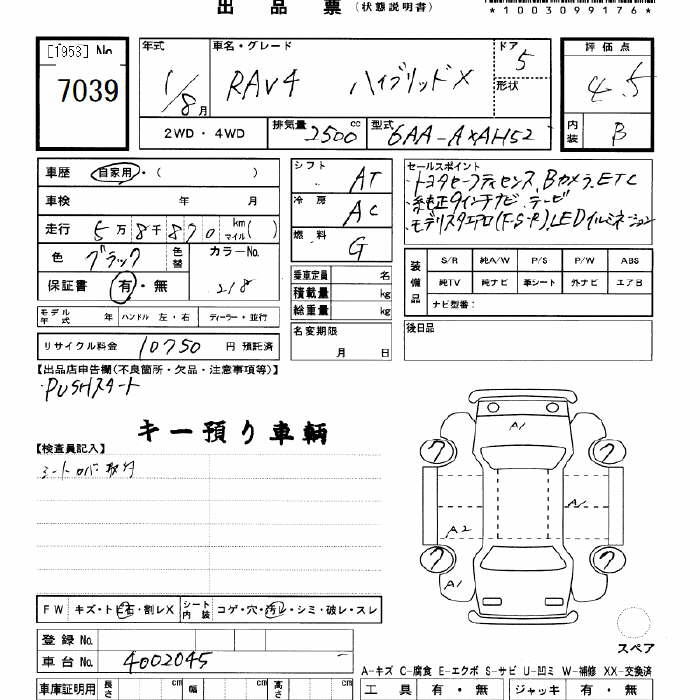 出品票（状態説明書）
*1003099176*
[1953] No. 7039
年式 1/8月
車名・グレード RAV4 ハイブリッドX
ドア 5
形状
評価点 4.5
2WD・4WD
排気量 2500 cc
型式 6AA-AXAH52
内装 B
車歴 自家用・( )
車検 年 月
走行 5万8千870 km マイル( )
色 ブラック 色替 カラーNo. 218
保証書 有・無
モデル年式 年 ハンドル 左・右 ディーラー・並行
リサイクル料金 10750 円 預託済
シフト AT
冷房 AC
燃料 G
乗車定員 名
積載量 kg
総重量 kg
名変期限 月 日
セールスポイント
・トヨタセーフティセンス、Bカメラ、ETC
・純正9インチナビ、テービ
・モデリスタエアロ(F・S・R)、LEDイルミネーション
装備品
S/R 純A/W P/S P/W ABS
純TV 純ナビ 革シート 外ナビ エアB
ナビ型番：
後日品
【出品店申告欄(不良箇所・欠品・注意事項等)】
・PUSHスタート
キー預り車輌
【検査員記入】
シート
A1
7 7
A2
A1
7 7
A1
FW キズ・トビ石・割レX シート内装 コゲ・穴・汚レ・シミ・破レ・スレ
登録No.
車台No. 4002045
スペア
A-キズ C-腐食 E-エクボ S-サビ U-凹ミ W-補修 XX-交換済
車庫証明用 長さ cm 幅 cm 高さ cm
工具 有・無 ジャッキ 有・無